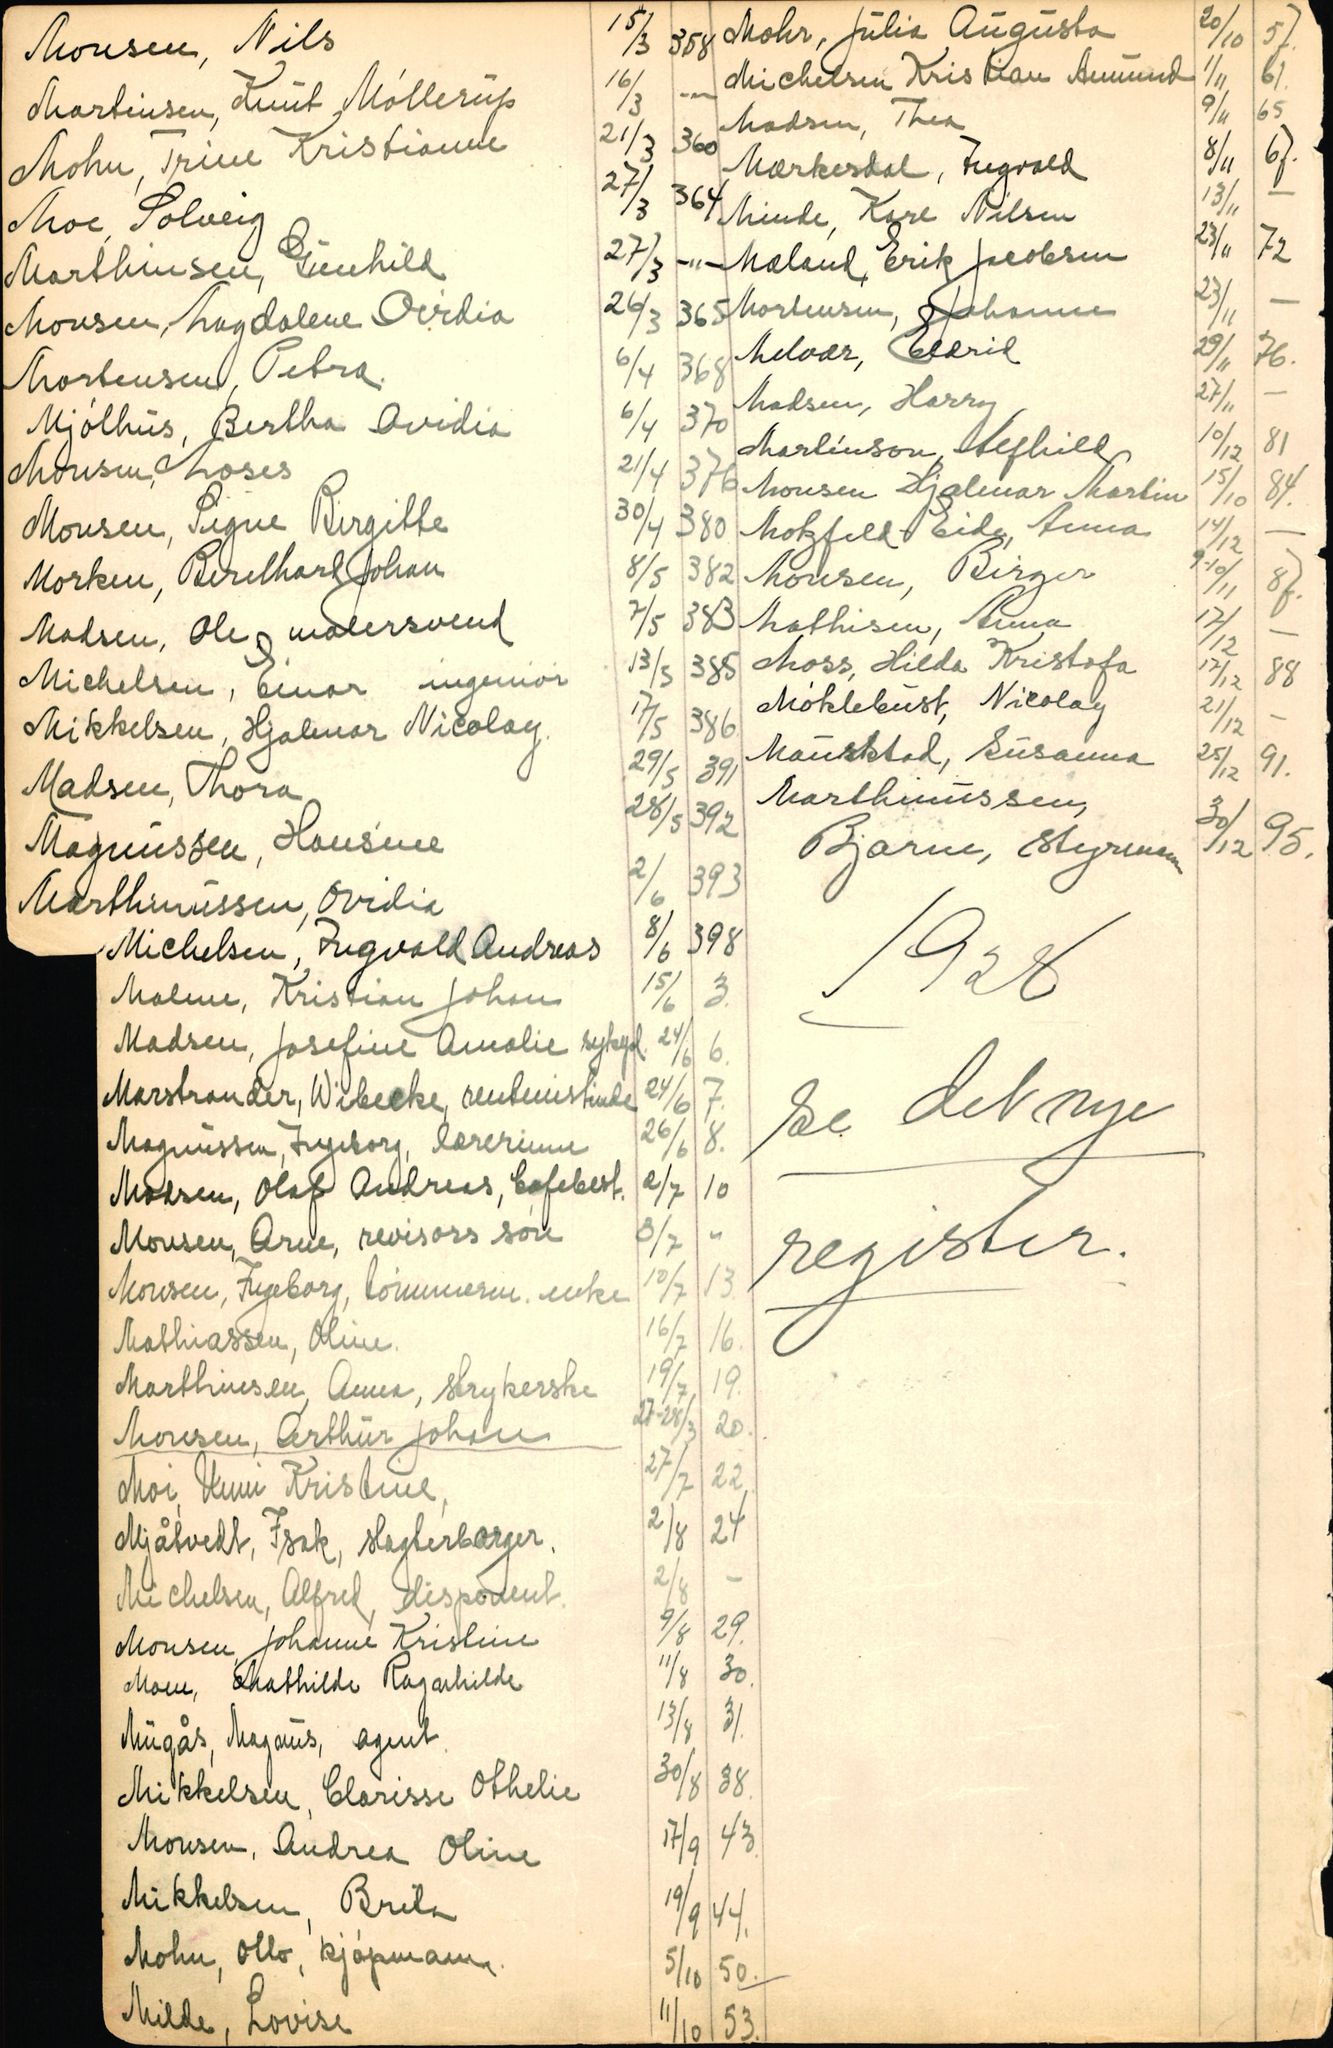 Monsen, Nils 15/3 358
Martinsen, Knut Møllerup 16/3 -"-
Mohn, Trine Kristianne 21/3 360
Moe, Solveig 27/3 364
Marthinsen, Gunhild 27/3 -"-
Monsen, Magdalene Ovidia 26/3 365
Mortensen, Petra. 6/4 368
Mjólhus, Bertha Ovidia 6/4 370
Monsen, Moses 21/4 376
Monsen, Signe Birgitte 30/4 380
Morken, Johan 8/5 382
Madsen, Ole, malersvend 7/5 383
Michelsen, Einar ingeniór 13/5 385
Mikkelsen, Hjalmar Nicolay. 17/5 386
Madsen, Thora 29/5 391
Magnussen, Hansine 28/5 392
Marthinussen, Ovidia 2/6 393
Michelsen, Ingvald Andreas 8/6 398
Malme, Kristian Johan 15/6 3.
Madsen, Josefine Amalie 24/6 6.
Marstrander, Wibecke, rentenistinde 24/6 7.
Magnussen, Ingeborg, lærerinne 26/6 8.
Madsen, Olaf Andreas, Cafebest. 2/7 10
Monsen, Arne, revisors són 8/7 "
Monsen, Ingeborg, tómmerm. enke 10/7 13.
Mathiassen, Oline. 16/7 16.
Marthinsen, Anna, strykerske 19/7 19.
Monsen, Arthur Johan 27-28/3 20.
Moi, Kristine, 27/7 22
Mjåtvedt, Isak, slagterborger. 2/8 24
Michelsen, Alfred, disponent. 2/8 -
Monsen, Johanne Kristine 9/8 29.
Moen, Mathilde Ragnhilde 11/8 30.
Mugås, Magnus, agent. 13/8 31.
Mikkelsen, Clarisse Othelie 30/8 38.
Monsen, Andrea Oline 17/9 43.
Mikkelsen, Brita 19/9 44.
Mohn, Otto, kjópmann. 5/10 50.
Milde, Lovise 11/10 53.
Mohr, Julia Augusta 20/10 57.
Michelsen Kristian Amund 1/11 61.
Madsen, Thea 9/11 65
Mærkesdal, Ingvald 8/11 67.
Minde, Kare Nilsen 13/11 -
Mæland, Erik Jacobsen 23/11 72
Mortensen, Johanne 23/11 -
Melvær, Eldrid 29/11 76.
Madsen, Harry 27/11 -
Martinson, Alfhild 10/12 81
Monsen Hjalmar Martin 15/10 84.
Motzfeld-Eide, Anna 14/12 -
Monsen, Birger 9-10/11 87.
Mathisen, Anna 17/12 -
Moss, Hilda Kristofa 17/12 88
Móklebust, Nicolay 21/12 -
Maurstad, Susanna 25/12 91.
Marthinussen,
Bjarne, styrmann 30/12 95.
1928
se det nye
register.